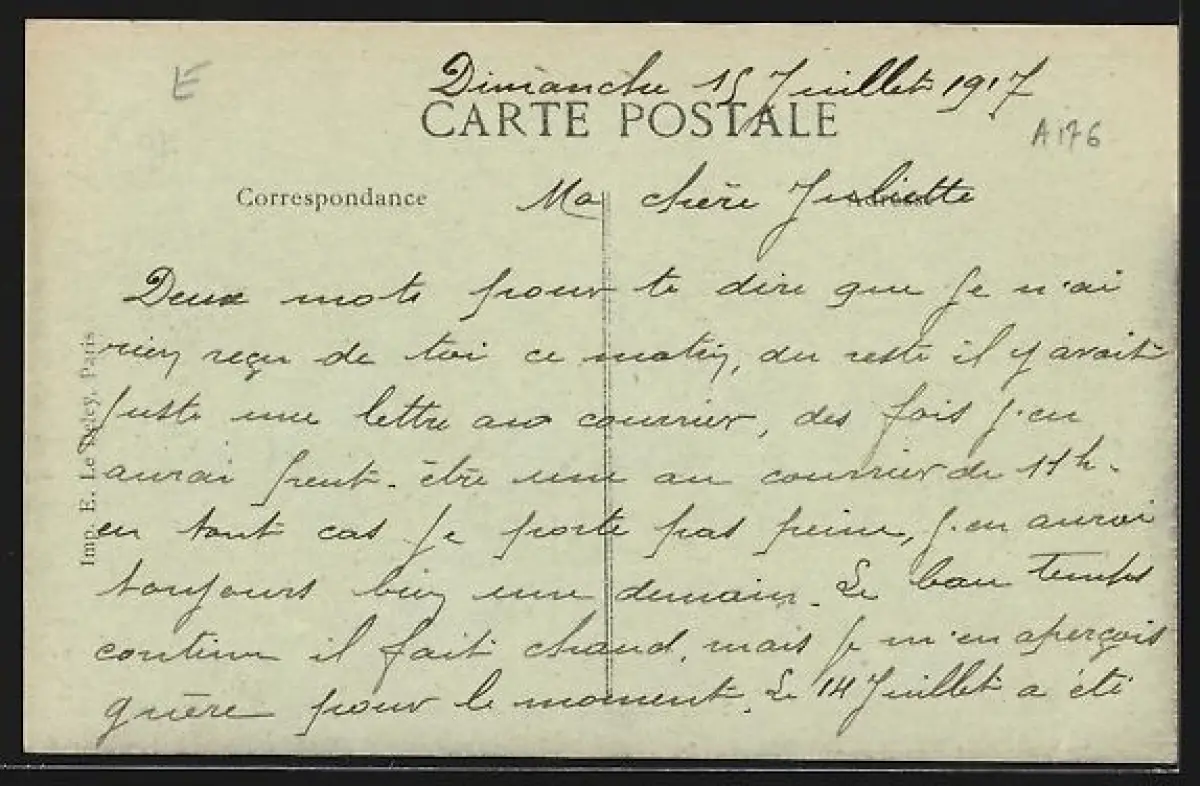 E
Dimanche 15 Juillet 1917
CARTE POSTALE
A176
Correspondance
Ma chère Juliette
Adresse
Deux mots pour te dire que je n'ai
rien reçu de toi ce matin, du reste il y avait
juste une lettre au courrier, des fois j'en
aurai peut-être une au courrier de 11h.
en tout cas je porte pas peine, j'en aurai
toujours bien une demain. Le beau temps
continu il fait chaud, mais je m'en aperçois
guère pour le moment. Le 14 Juillet a été
Imp. E. Le Deley, Paris